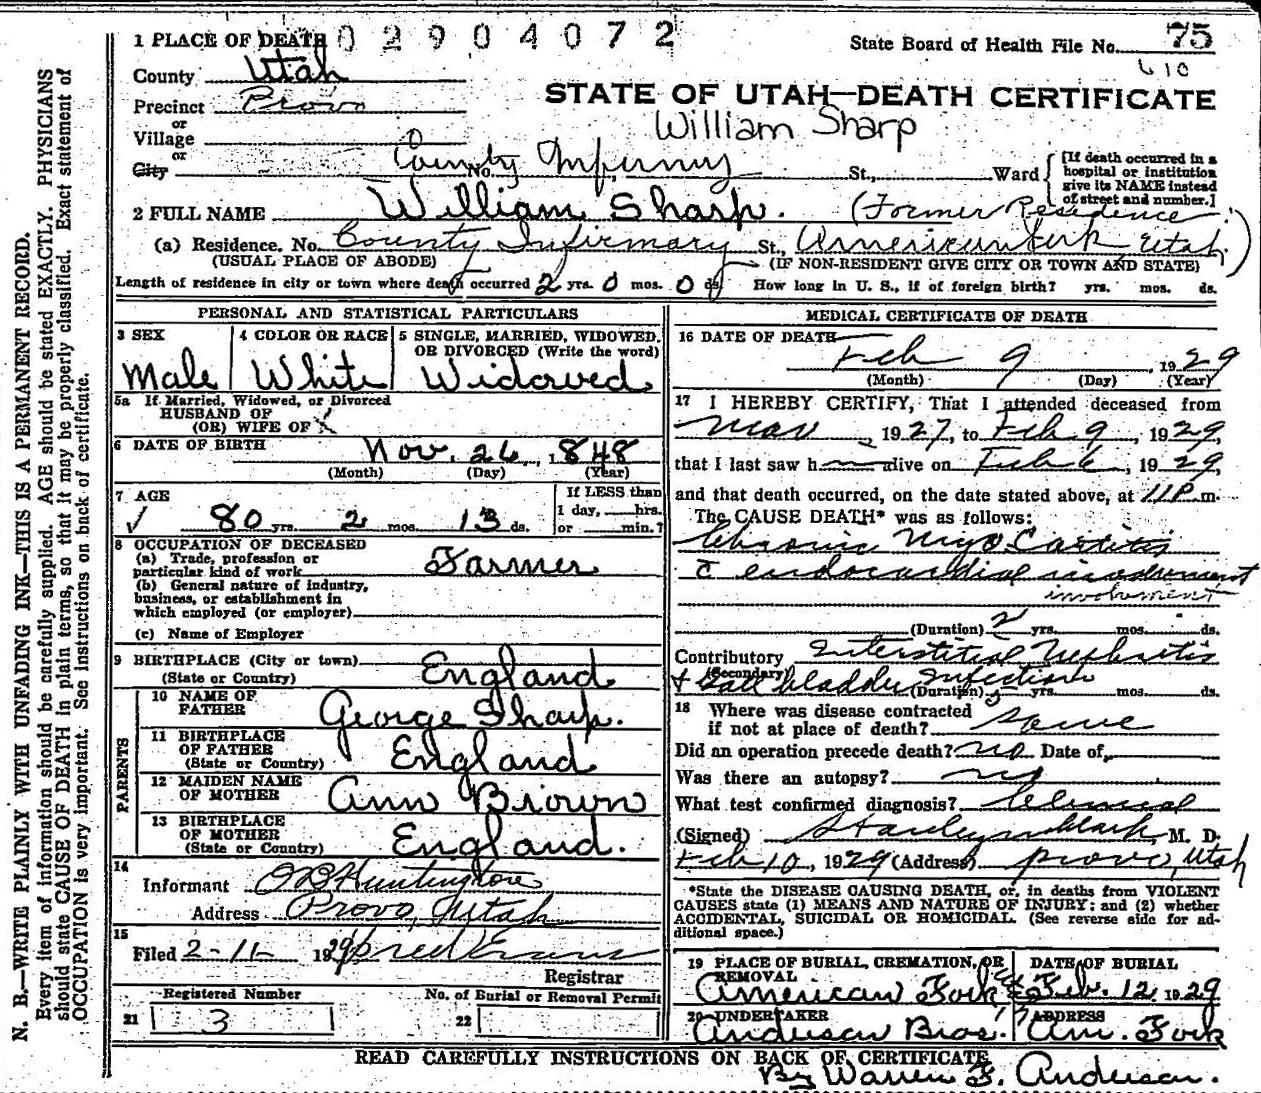 02904072
1 PLACE OF DEATH
State Board of Health File No. 75
610
County Utah
STATE OF UTAH—DEATH CERTIFICATE
Precinct Provo
William Sharp
or
Village
or
City County Infirmary No. St., Ward
[If death occurred in a
hospital or institution
give its NAME instead
of street and number.]
2 FULL NAME William Sharp. (Former Residence
(a) Residence. No. County Infirmary St., American Fork Utah.)
(USUAL PLACE OF ABODE) (IF NON-RESIDENT GIVE CITY OR TOWN AND STATE)
Length of residence in city or town where death occurred 2 yrs. 0 mos. 0 ds. How long in U. S., if of foreign birth? yrs. mos. ds.
PERSONAL AND STATISTICAL PARTICULARS
3 SEX
Male
4 COLOR OR RACE
White
5 SINGLE, MARRIED, WIDOWED,
OR DIVORCED (Write the word)
Widowed
5a If Married, Widowed, or Divorced
HUSBAND OF
(OR) WIFE OF
6 DATE OF BIRTH Nov. 26, 1848
(Month) (Day) (Year)
7 AGE
80 yrs. 2 mos. 13 ds.
If LESS than
1 day, hrs.
or min.?
8 OCCUPATION OF DECEASED
(a) Trade, profession or
particular kind of work Farmer
(b) General nature of industry,
business, or establishment in
which employed (or employer)
(c) Name of Employer
9 BIRTHPLACE (City or town)
(State or Country) England
PARENTS
10 NAME OF
FATHER George Sharp.
11 BIRTHPLACE
OF FATHER
(State or Country) England
12 MAIDEN NAME
OF MOTHER Ann Brown
13 BIRTHPLACE
OF MOTHER
(State or Country) England.
14
Informant
Address Provo, Utah
15
Filed 2-11- 1929 Fred Evans
Registrar
Registered Number
21 3
No. of Burial or Removal Permit
22
MEDICAL CERTIFICATE OF DEATH
16 DATE OF DEATH
Feb 9, 1929
(Month) (Day) (Year)
17 I HEREBY CERTIFY, That I attended deceased from
1927, to Feb 9, 1929,
that I last saw h alive on Feb 6, 1929,
and that death occurred, on the date stated above, at 11 P. m.
The CAUSE DEATH* was as follows:
Chronic Myo Carditis
c̄ endocardial involvement
involvment
(Duration) 2 yrs. mos. ds.
Contributory Interstitial Nephritis
(Secondary)
+ Gall bladder Infection
(Duration) yrs. mos. ds.
18 Where was disease contracted
if not at place of death? Same
Did an operation precede death? no Date of
Was there an autopsy? no
What test confirmed diagnosis? Clinical
(Signed) M. D.
Feb 10, 1929 (Address) Provo, Utah
*State the DISEASE CAUSING DEATH, or, in deaths from VIOLENT
CAUSES state (1) MEANS AND NATURE OF INJURY; and (2) whether
ACCIDENTAL, SUICIDAL OR HOMICIDAL. (See reverse side for ad-
ditional space.)
19 PLACE OF BURIAL, CREMATION, OR
REMOVAL
American Fork
DATE OF BURIAL
Feb. 12, 1929
20 UNDERTAKER
Anderson Bros.
ADDRESS
Am. Fork
READ CAREFULLY INSTRUCTIONS ON BACK OF CERTIFICATE
By Warren F. Anderson.
N. B.—WRITE PLAINLY WITH UNFADING INK—THIS IS A PERMANENT RECORD.
Every item of information should be carefully supplied. AGE should be stated EXACTLY. PHYSICIANS
should state CAUSE OF DEATH in plain terms, so that it may be properly classified. Exact statement of
OCCUPATION is very important. See instructions on back of certificate.